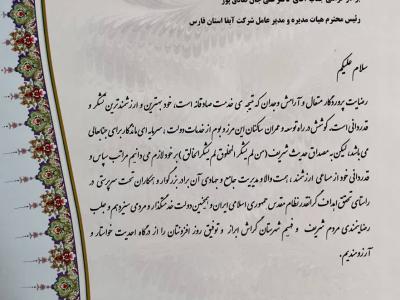 رئیس محترم هیات مدیره و مدیر عامل شرکت آبفا استان فارس
سلام علیکم
رضایت پروردگار متعال و آرامش وجدان که نتیجه ی خدمت صادقانه است، خود بهترین و ارزشمندترین تشکر و
قدردانی است. کوشش در راه توسعه و عمران ساکنان این مرز و بوم از خدمات دولت، سرمایه ای ماندگار برای جنابعالی
می باشد، لیکن به مصداق حدیث شریف (من لم یشکر المخلوق لم یشکر الخالق) بر خود لازم می دانیم مراتب سپاس و
قدردانی خود از مساعی ارزشمند، همت والا و مدیریت جامع و جهادی آن برادر بزرگوار و همکاران تحت سرپرستی در
راستای تحقق اهداف گرانقدر نظام مقدس جمهوری اسلامی ایران و همچنین دولت خدمتگذار و مردمی سیزدهم و جلب
رضایتمندی مردم شریف و فهیم شهرستان گراش ابراز و توفیق روز افزونتان را از درگاه احدیت خواستار و
آرزومندیم.